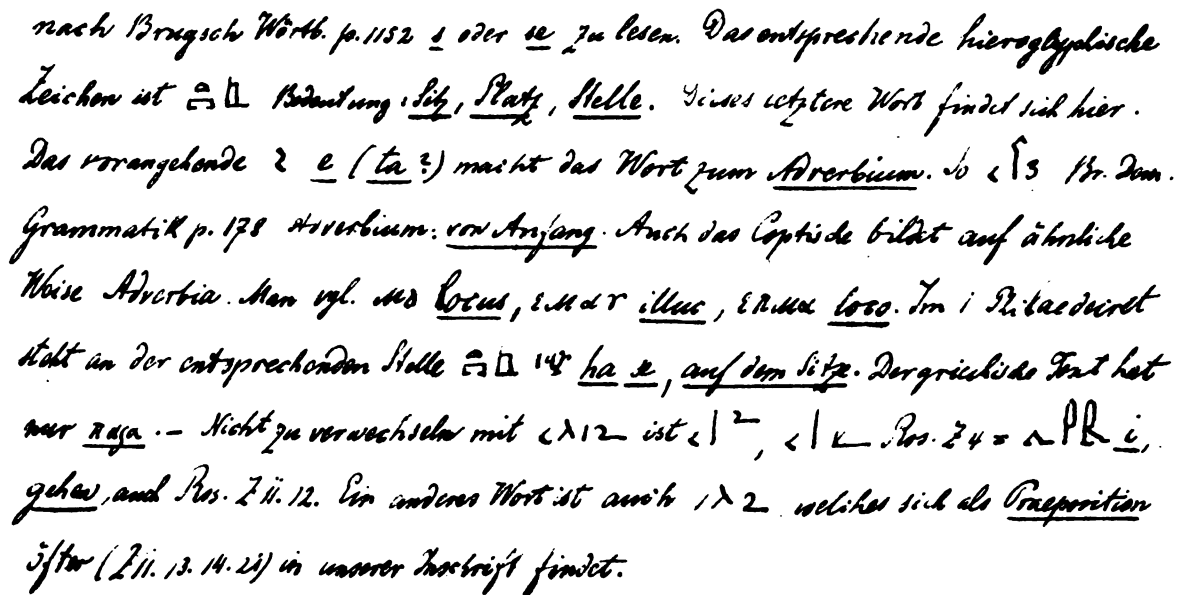 nach Brugsch Wörtb. p. 1152 s oder se zu lesen. Das entsprechende hieroglyphische
Zeichen ist Bedeutung: Sitz, Platz, Stelle. Dieses letztere Wort findet sich hier.
Das vorangehende e (ta?) macht das Wort zum Adverbium. So Br. Dem.
Grammatik p. 178 Adverbium: von Anfang. Auch das Coptische bildet auf ähnliche
Weise Adverbia. Man vgl. ⲙⲁ locus, ⲉⲙⲁⲩ illuc, ⲉⲡⲙⲁ loco. Im Philaedecret
steht an der entsprechenden Stelle ha se, auf dem Sitze. Der griechische Text hat
nur παρα. – Nicht zu verwechseln mit ist Ros. Z 4 = i,
gehen, auch Ros. Z 11. 12. Ein anderes Wort ist auch welches sich als Praeposition
öfter (Z 11. 13. 14. 21) in unserer Inschrift findet.